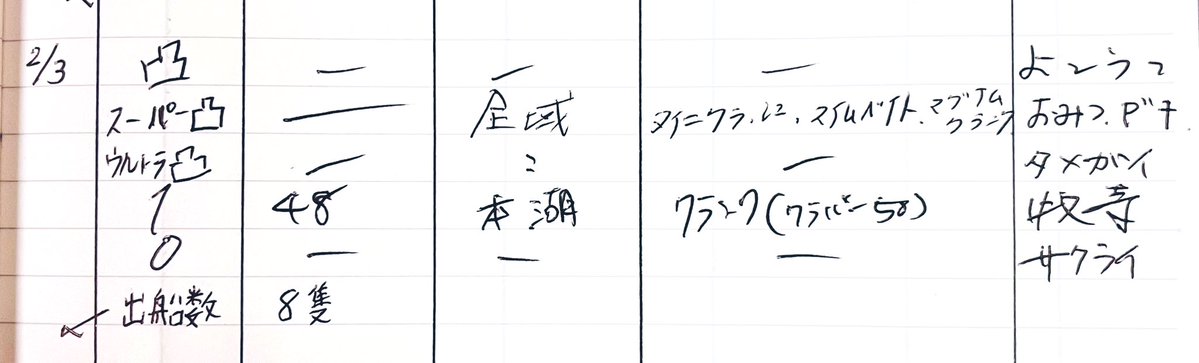 2/3 凸 ー ー ー よこうこ
スーパー凸 ー 全域 タイニークランク、スイムベイト、マグナムクランク おみつ、ピナ
ウルトラ凸 ー 〃 ー タメガイ
1 48 本湖 クランク(クラパー58) 牧寺
0 ー ー ー サクライ
出船数 8隻